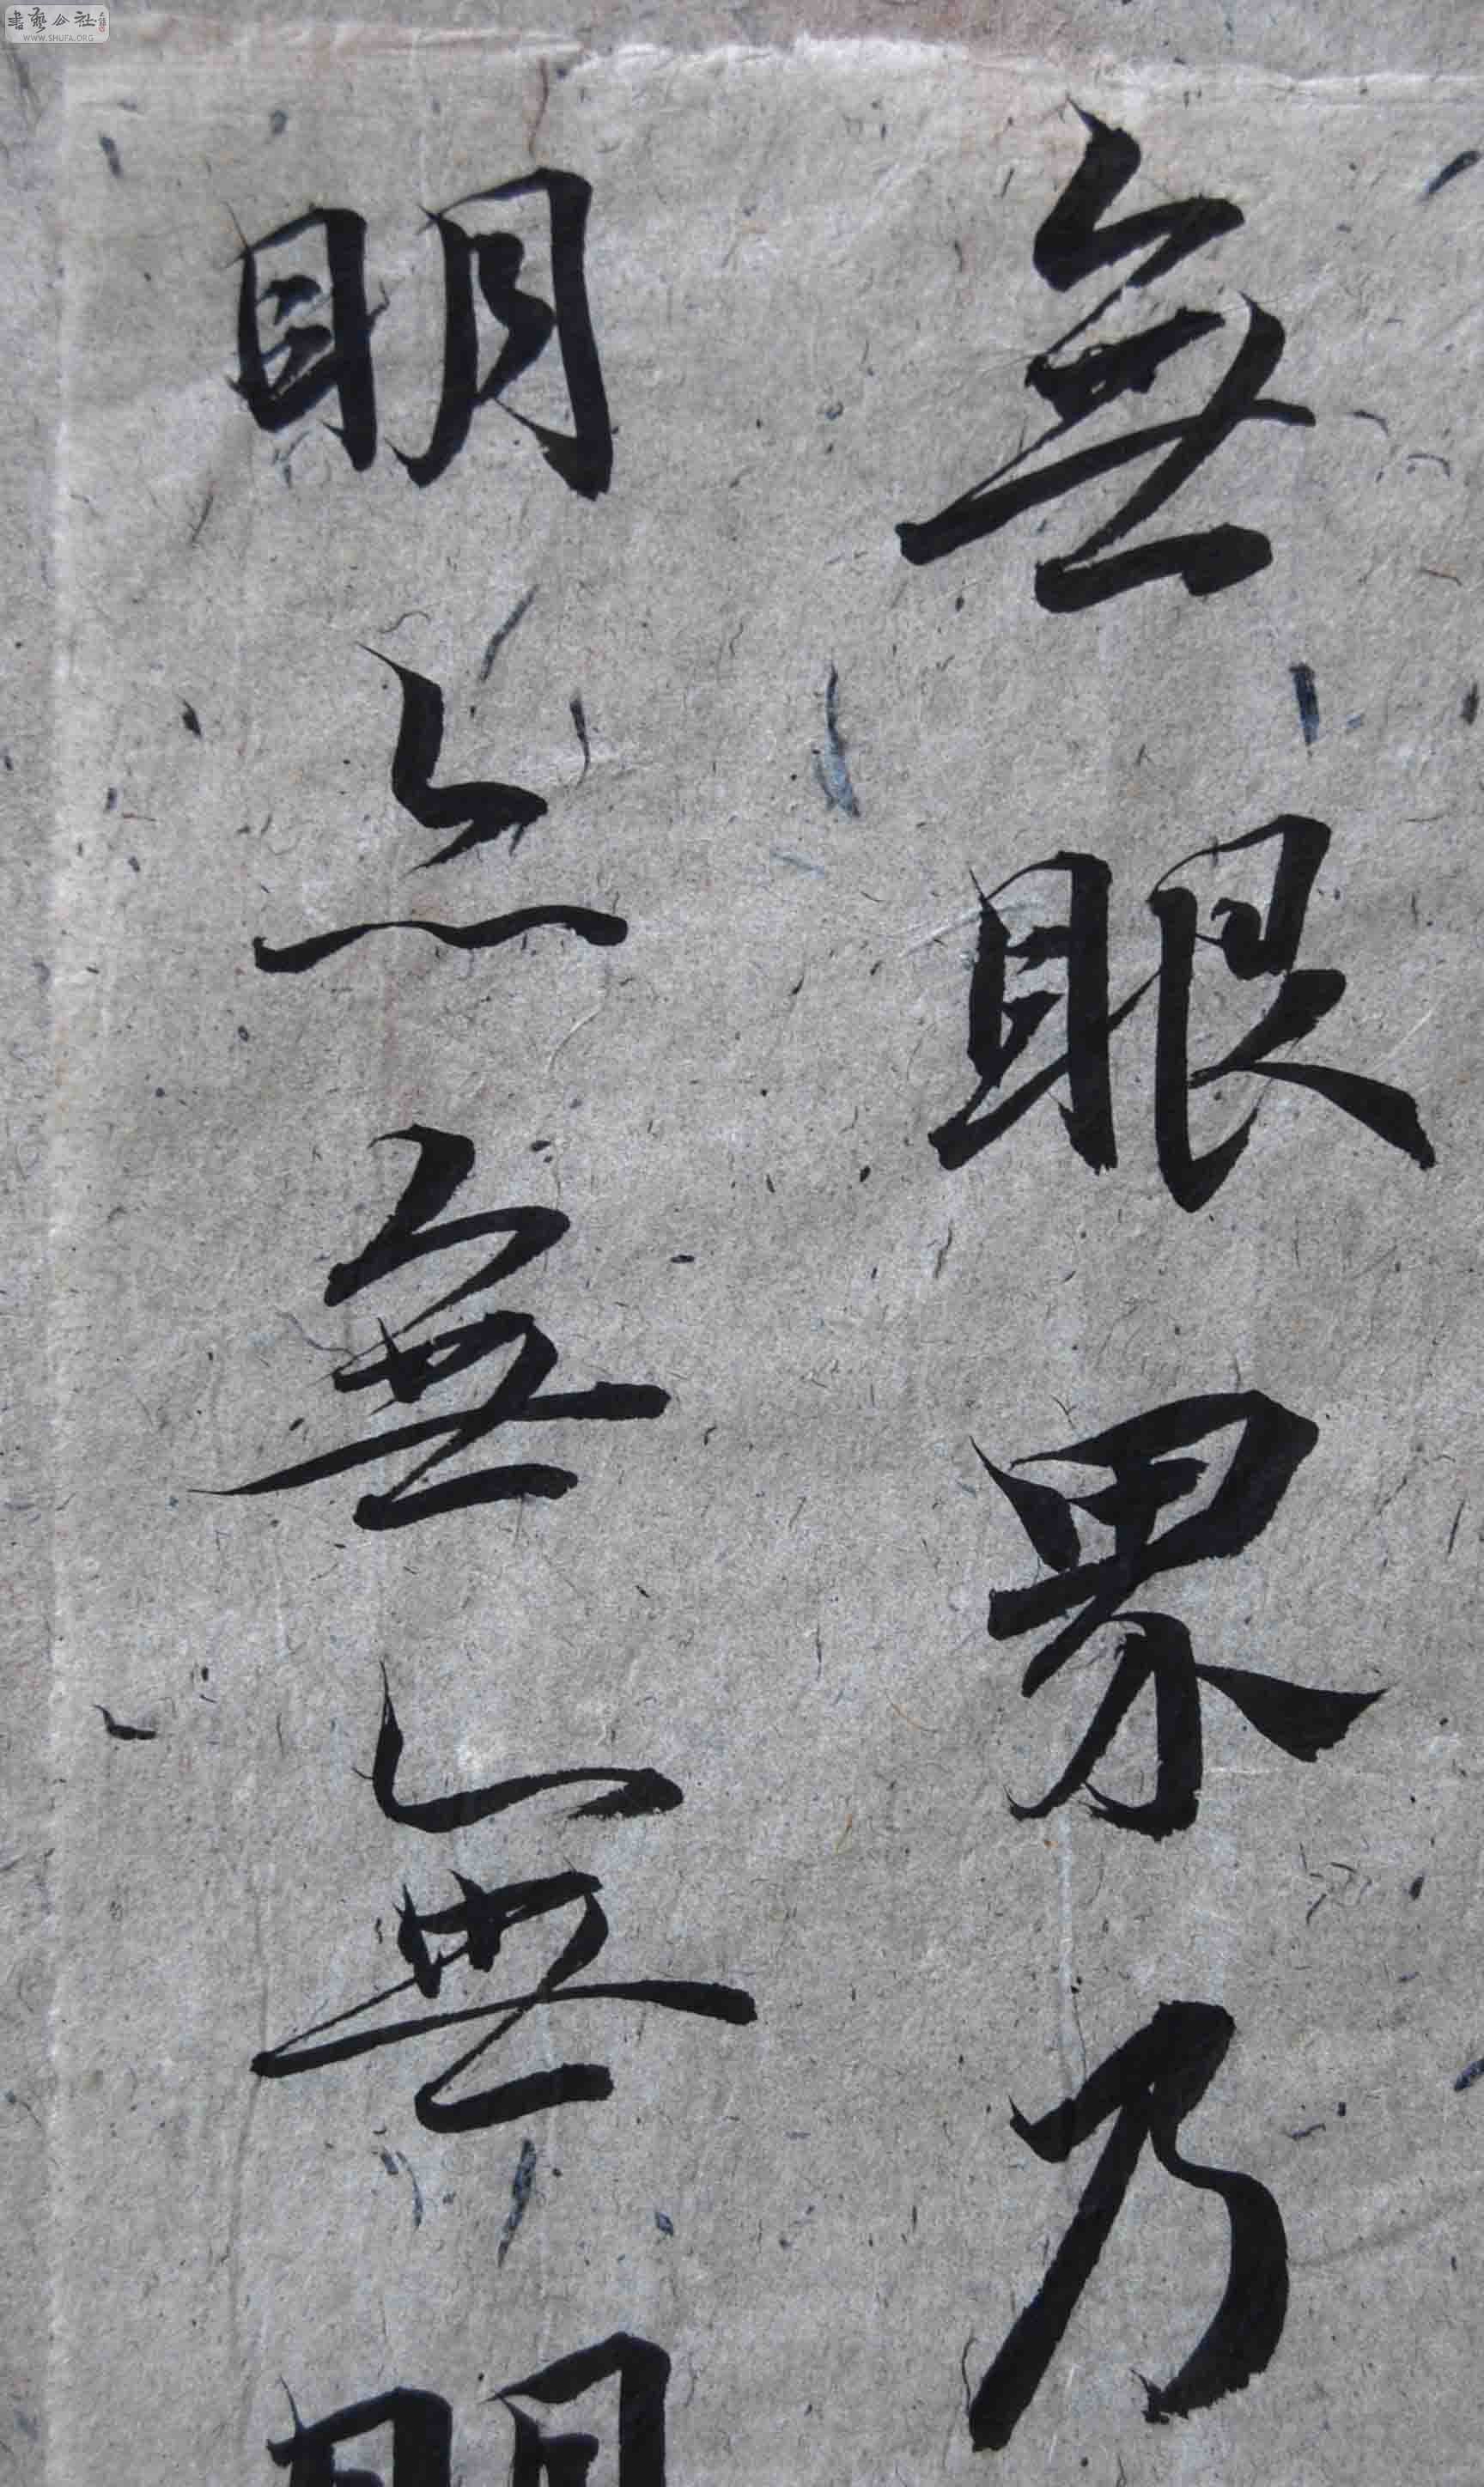 無眼界乃
明亦無無明
書藝公社
WWW.SHUFA.ORG